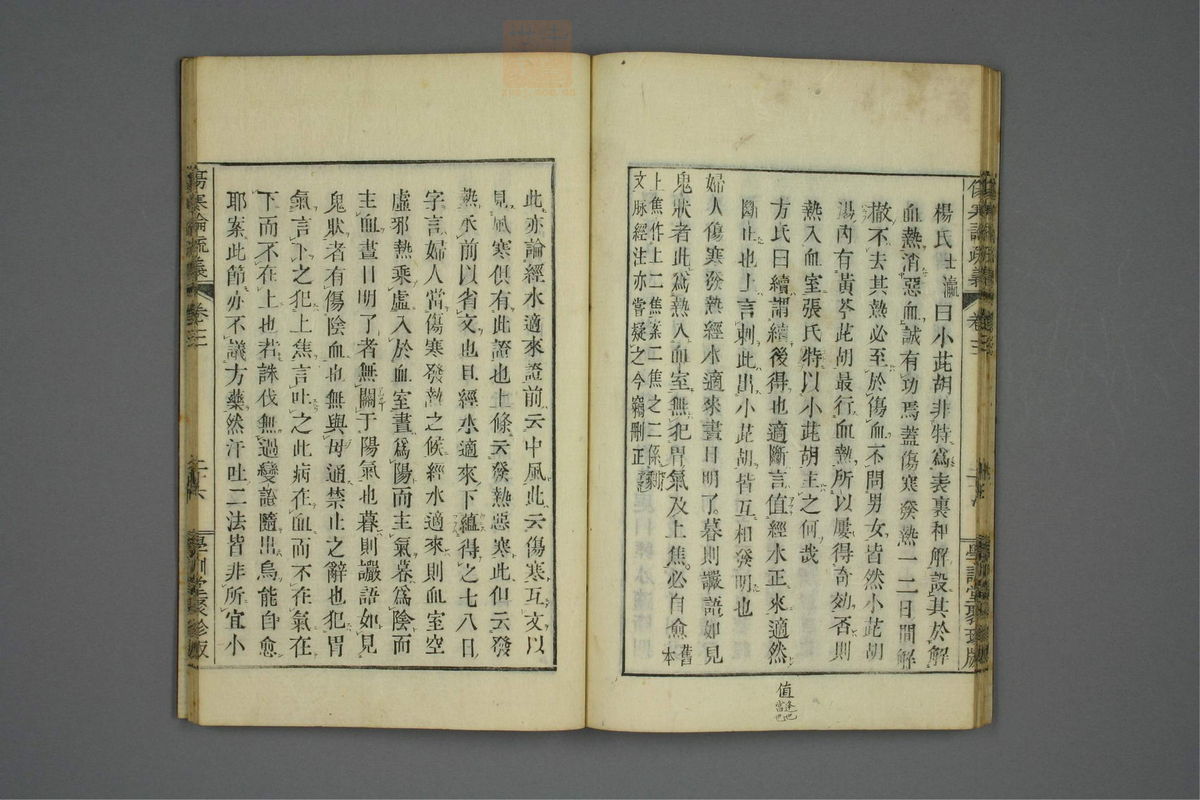 傷寒論疏義 卷三 學訓堂聚珍版
楊氏士瀛曰小茈胡非特爲表裏和解設其於解
血熱消惡血誠有功焉蓋傷寒發熱一二日間解
撤不去其熱必至於傷血不問男女皆然小茈胡
湯內有黃芩茈胡最行血熱所以屢得奇効否則
熱入血室張氏特以小茈胡主之何哉
方氏曰續謂續後得也適斷言值經水正來適然
斷止也上言刺此出小茈胡皆互相發明也
婦人傷寒發熱經水適來晝日明了暮則讝語如見
鬼狀者此爲熱入血室無犯胃氣及上焦必自愈舊本
上焦作上二焦系二焦之二係衍
文脉經注亦嘗疑之今竊刪正
值逢也當也
此亦論經水適來證前云中風此云傷寒互文以
見風寒俱有此證也上條云發熱惡寒此但云發
熱承前以省文也且經水適來下蘊得之七八日
字言婦人當傷寒發熱之候經水適來則血室空
虛邪熱乘虛入於血室晝爲陽而主氣暮爲陰而
主血晝日明了者無關于陽氣也暮則讝語如見
鬼狀者有傷陰血也無與毋通禁止之辭也犯胃
氣言下之犯上焦言吐之此病在血而不在氣在
下而不在上也若誅伐無過變證隨出烏能自愈
耶案此節亦不議方藥然汗吐二法皆非所宜小
傷寒論疏義 卷三 學訓堂聚珍版